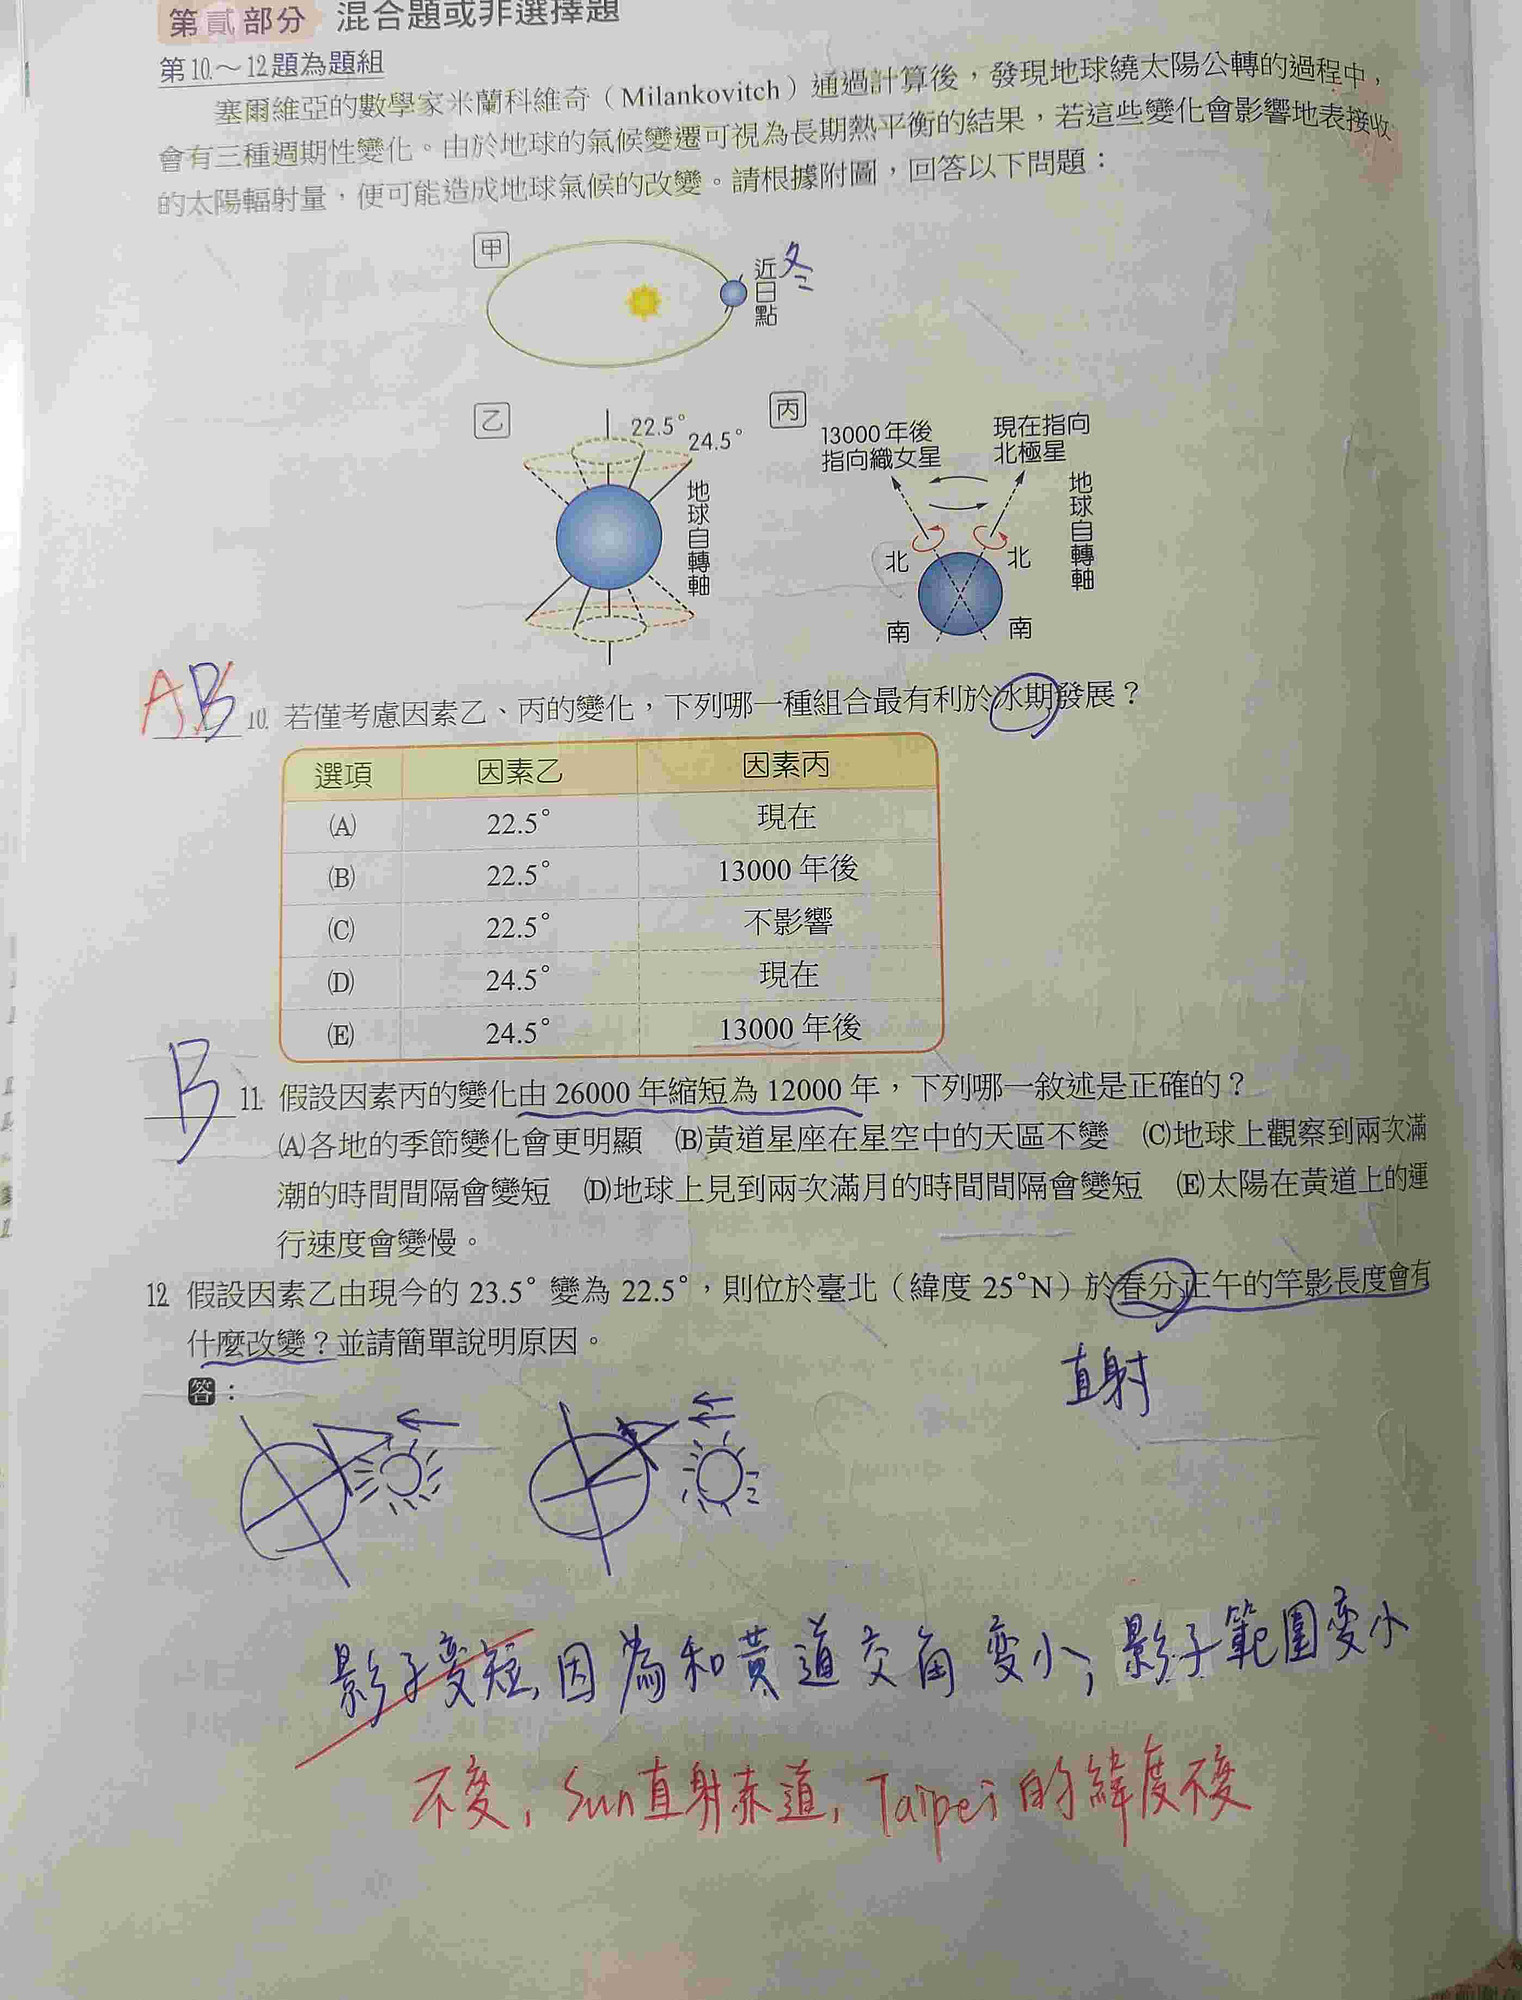 第貳部分 混合題或非選擇題
第10.～12題為題組
塞爾維亞的數學家米蘭科維奇（Milankovitch）通過計算後，發現地球繞太陽公轉的過程中，
會有三種週期性變化。由於地球的氣候變遷可視為長期熱平衡的結果，若這些變化會影響地表接收
的太陽輻射量，便可能造成地球氣候的改變。請根據附圖，回答以下問題：
甲
近日點
冬
乙
22.5°
24.5°
地球自轉軸
丙
13000年後
指向織女星
現在指向
北極星
地球自轉軸
北
北
南
南
AB 10. 若僅考慮因素乙、丙的變化，下列哪一種組合最有利於冰期發展？
選項 因素乙 因素丙
(A) 22.5° 現在
(B) 22.5° 13000 年後
(C) 22.5° 不影響
(D) 24.5° 現在
(E) 24.5° 13000 年後
B 11. 假設因素丙的變化由 26000 年縮短為 12000 年，下列哪一敘述是正確的？
(A)各地的季節變化會更明顯 (B)黃道星座在星空中的天區不變 (C)地球上觀察到兩次滿
潮的時間間隔會變短 (D)地球上見到兩次滿月的時間間隔會變短 (E)太陽在黃道上的運
行速度會變慢。
12 假設因素乙由現今的 23.5° 變為 22.5°，則位於臺北（緯度 25°N）於春分正午的竿影長度會有
什麼改變？並請簡單說明原因。
直射
答：
影子變短，因為和黃道交角變小，影子範圍變小
不變，Sun直射赤道，Taipei的緯度不變